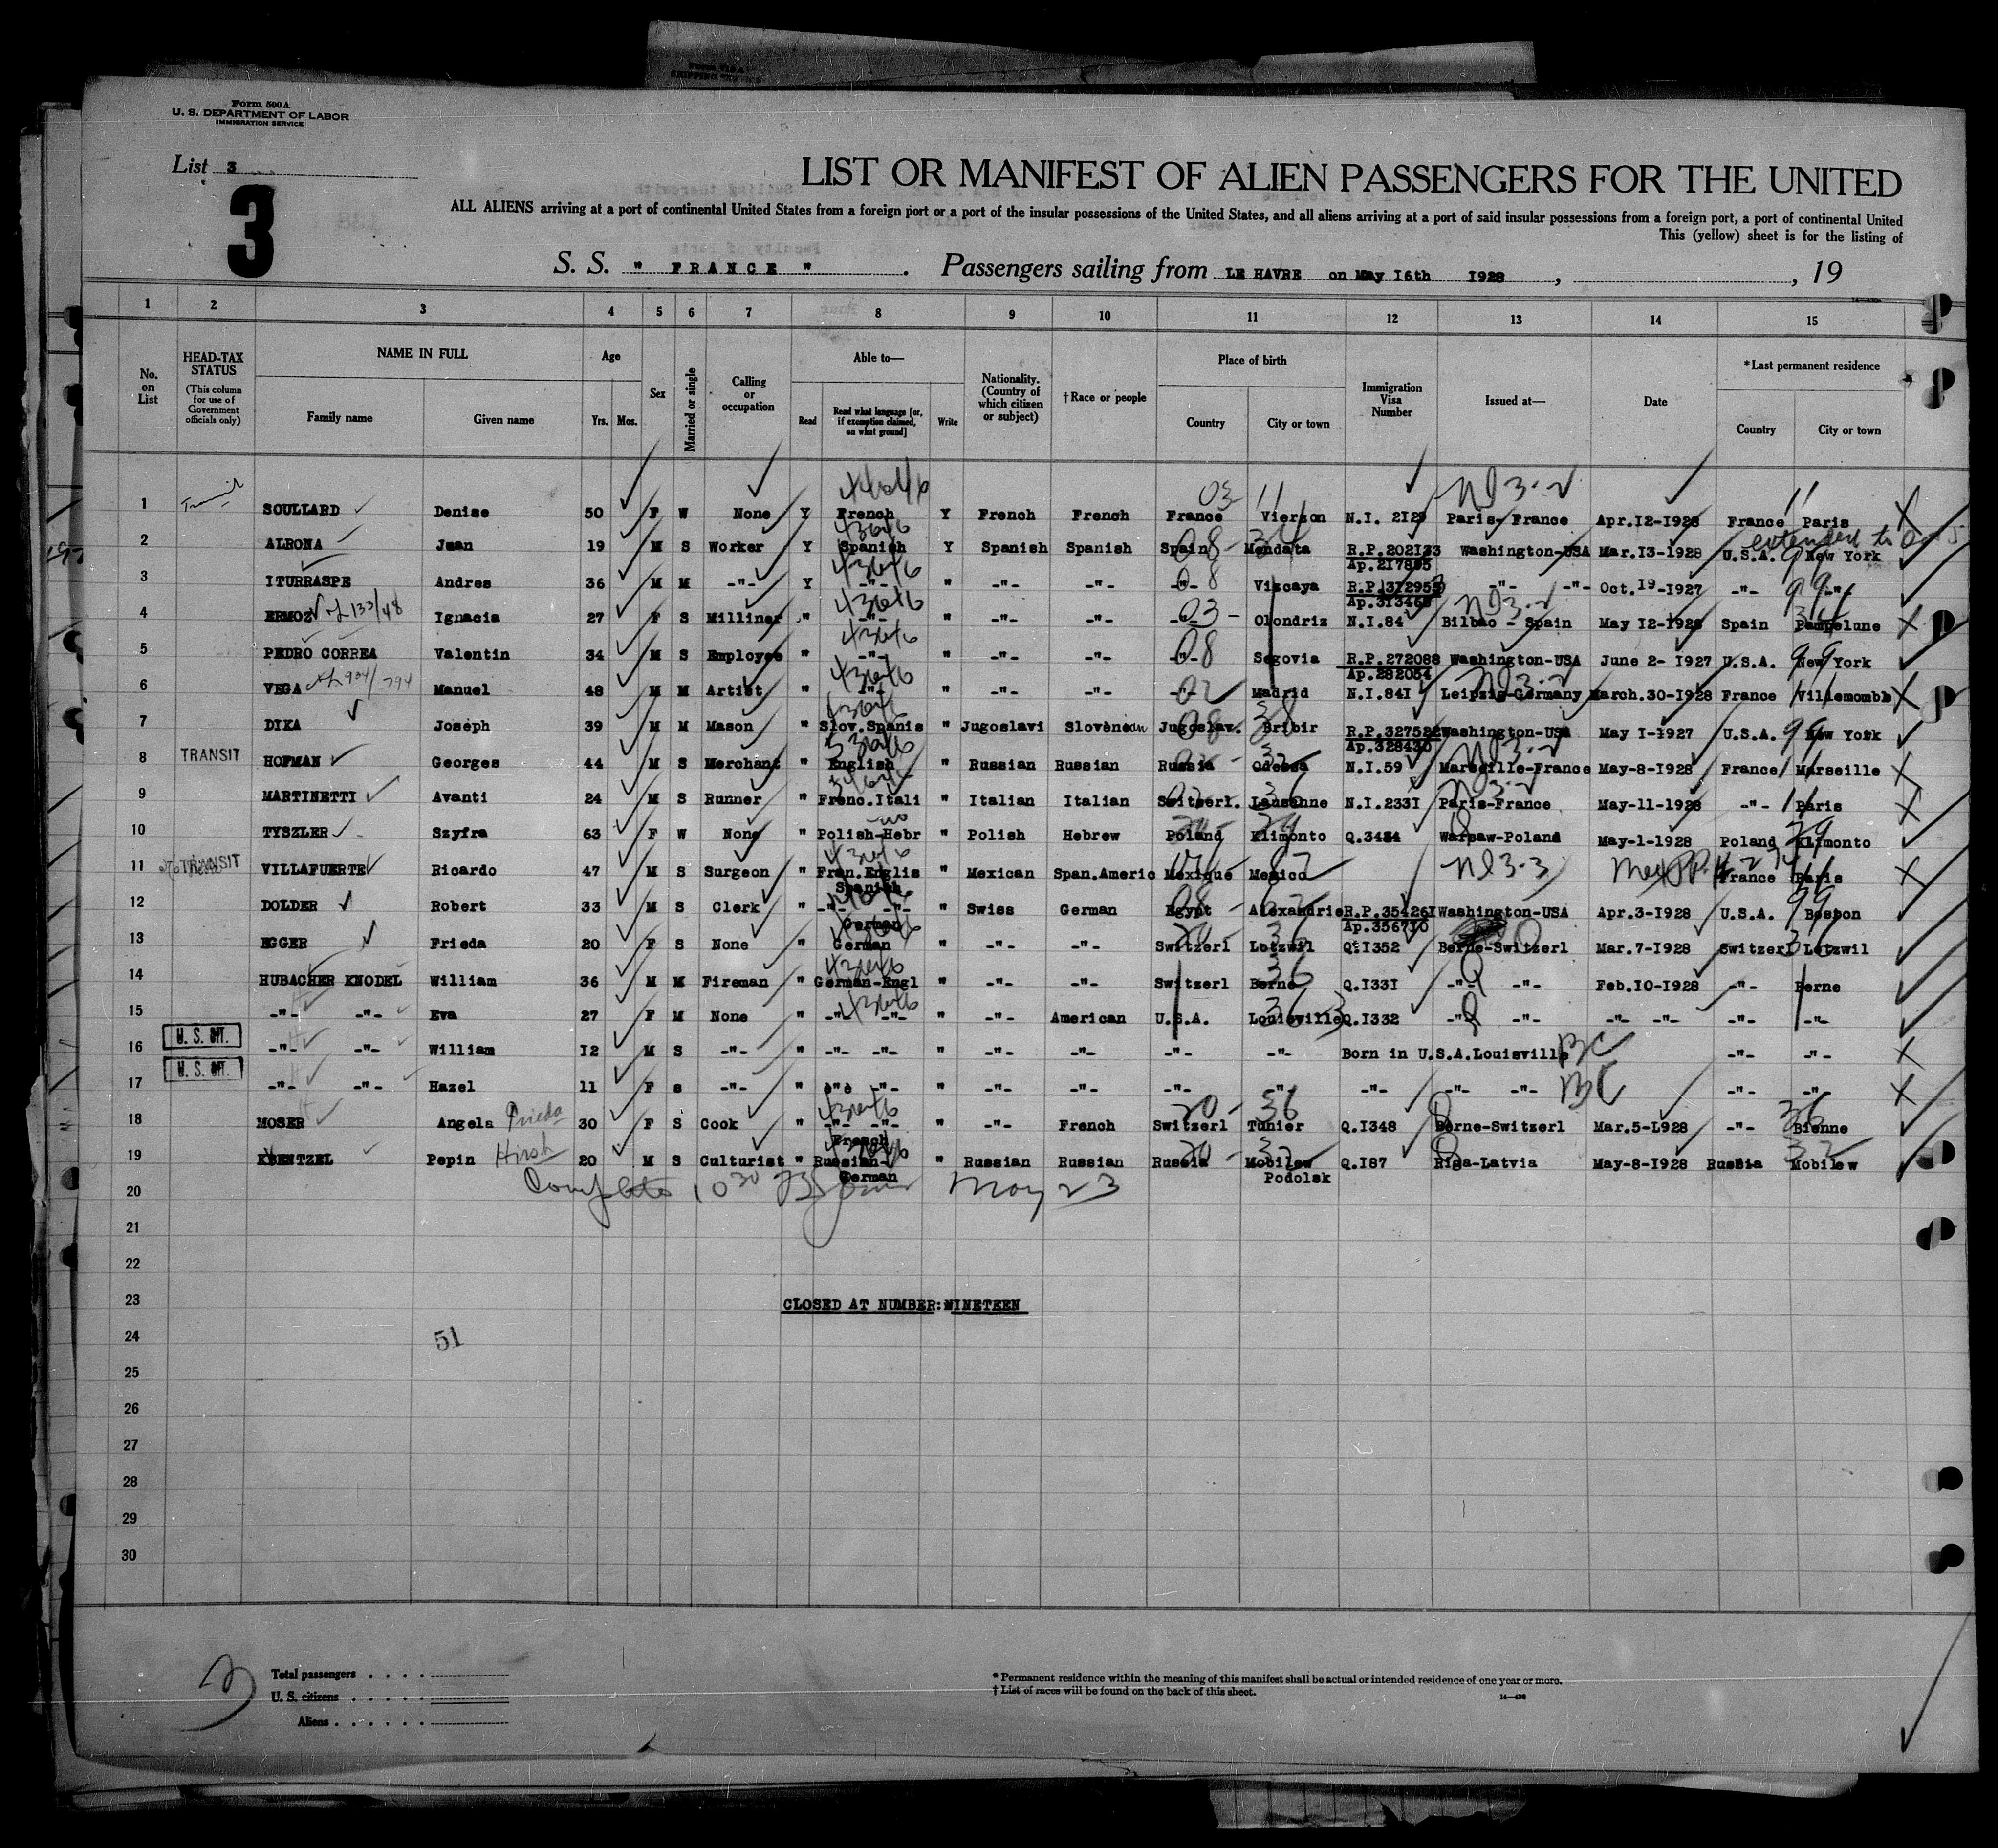 Form 500A
U. S. DEPARTMENT OF LABOR
IMMIGRATION SERVICE
List 3
3
LIST OR MANIFEST OF ALIEN PASSENGERS FOR THE UNITED
ALL ALIENS arriving at a port of continental United States from a foreign port or a port of the insular possessions of the United States, and all aliens arriving at a port of said insular possessions from a foreign port, a port of continental United
This (yellow) sheet is for the listing of
S. S. " FRANCE " . Passengers sailing from LE HAVRE on May 16th 1928 , , 19
1 2 3 4 5 6 7 8 9 10 11 12 13 14 15
No. on List
HEAD-TAX STATUS (This column for use of Government officials only)
NAME IN FULL Family name Given name
Age Yrs. Mos.
Sex
Married or single
Calling or occupation
Able to— Read Read what language [or, if exemption claimed, on what ground] Write
Nationality. (Country of which citizen or subject)
†Race or people
Place of birth Country City or town
Immigration Visa Number
Issued at—
Date
*Last permanent residence Country City or town
1 SOULLARD Denise 50 F W None Y French Y French French France Vierzon N.I. 2129 Paris-France Apr.12-1928 France Paris
extended to
2 ALRONA Juan 19 M S Worker Y Spanish Y Spanish Spanish Spain Mendata R.P.202133 Washington-USA Mar.13-1928 U.S.A. New York
Ap.217895
3 ITURRASPE Andres 36 M M -"- Y -"- " -"- -"- -"- Viscaya R.P.312955 -"- -"- Oct.19-1927 -"- -"-
Ap.313468
4 ERMOZ Ignacia 27 F S Milliner " -"- " -"- -"- -"- Olondriz N.I.84 Bilbao - Spain May 12-1928 Spain Pampelune
5 PEDRO CORREA Valentin 34 M S Employee " -"- " -"- -"- -"- Segovia R.P.272088 Washington-USA June 2- 1927 U.S.A. New York
Ap.282054
6 VEGA Manuel 48 M M Artist " -"- " -"- -"- -"- Madrid N.I.841 Leipzig-Germany March.30-1928 France Villemomble
7 DIKA Joseph 39 M M Mason " Slov.Spanis " Jugoslavi Slovenean Jugoslav. Bribir R.P.327522 Washington-USA May 1-1927 U.S.A. New York
Ap.328430
8 TRANSIT HOFMAN Georges 44 M S Merchant " English " Russian Russian Russia Odessa N.I.59 Marseille-France May-8-1928 France Marseille
9 MARTINETTI Avanti 24 M S Runner " Frenc.Itali " Italian Italian Switzerl. Lausanne N.I.2331 Paris-France May-11-1928 -"- Paris
10 TYSZLER Szyfra 63 F W None " Polish-Hebr " Polish Hebrew Poland Klimonto Q.3484 Warsaw-Poland May-1-1928 Poland Klimonto
11 TRANSIT VILLAFUERTE Ricardo 47 M S Surgeon " Fran.Englis " Mexican Span.Americ Mexique Mexico France Paris
Spanish
12 DOLDER Robert 33 M S Clerk " -"- -"- " Swiss German Egypt Alexandrie R.P.354261 Washington-USA Apr.3-1928 U.S.A. Boston
German Ap.356710
13 EGGER Frieda 20 F S None " German " -"- -"- Switzerl Lotzwil Q.1352 Berne-Switzerl Mar.7-1928 Switzerl Lotzwil
14 HUBACHER KNODEL William 36 M M Fireman " German-Engl " -"- -"- Switzerl Berne Q.1331 -"- -"- Feb.10-1928 -"- Berne
15 -"- -"- Eva 27 F M None " -"- -"- " -"- American U.S.A. Louisville Q.1332 -"- -"- -"- -"- -"- -"-
16 U. S. CIT. -"- -"- William 12 M S -"- " -"- -"- " -"- -"- -"- -"- Born in U.S.A.Louisville BC -"- -"-
17 U. S. CIT. -"- -"- Hazel 11 F s -"- " -"- -"- " -"- -"- -"- -"- -"- -"- -"- BC -"- -"-
18 MOSER Angela Frieda 30 F S Cook " -"- -"- " -"- French Switzerl Tunier Q.1348 Berne-Switzerl Mar.5-L928 -"- Bienne
French
19 KRENTZEL Pepin Hirsh 20 M S Culturist " Russian- " Russian Russian Russia Mobilew Q.187 Riga-Latvia May-8-1928 Russia Mobilew
German Podolsk
20 Complete 10 30 May 23
21
22
23 CLOSED AT NUMBER: NINETEEN
24 51
25
26
27
28
29
30
Total passengers
U. S. citizens
Aliens
* Permanent residence within the meaning of this manifest shall be actual or intended residence of one year or more.
† List of races will be found on the back of this sheet.